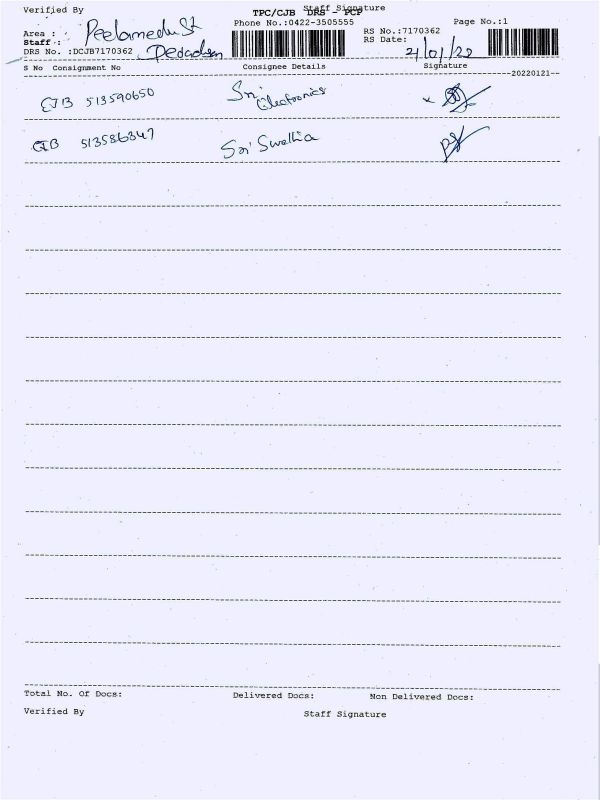 Verified By Staff Signature
TPC/CJB DRS - PCP
Phone No.:0422-3505555 Page No.:1
Area : Peelamedu St RS No.:7170362
Staff : RS Date: 21/01/22
DRS No. :DCJB7170362
S No Consignment No Consignee Details Signature
--20220121--
CJB 513590650 Sri Electronics
CJB 513586347 Sri Swathia
Total No. Of Docs: Delivered Docs: Non Delivered Docs:
Verified By Staff Signature